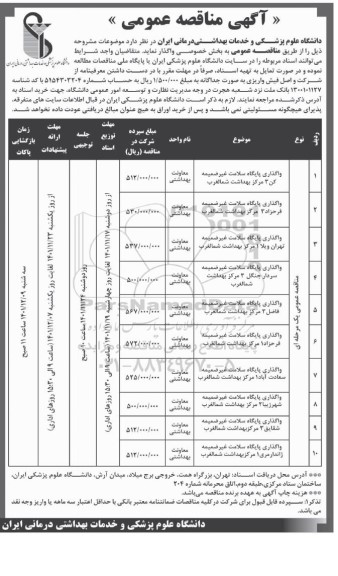 « آگهی مناقصه عمومی »
دانشگاه علوم پزشکی و خدمات بهداشتی درمانی ایران در نظر دارد موضوعات مشروحه
ذیل را از طریق مناقصه عمومی به بخش خصوصی واگذار نماید. متقاضیان واجد شرایط
می‌توانند اسناد مربوطه را در سایت دانشگاه علوم پزشکی ایران یا پایگاه ملی مناقصات مطالعه
نموده و در صورت تمایل به تهیه اسناد، صرفاً در مهلت مقرر با در دست داشتن معرفینامه از
شرکت و اصل فیش واریزی به صورت جداگانه به مبلغ ۱/۵۰۰/۰۰۰ به حساب شماره
بانک ملت نزد شعبه هجرت در وجه مدیریت نظارت و توسعه امور عمومی دانشگاه، جهت خرید اسناد به
آدرس ذکرشده مراجعه نمایند. لازم به ذکر است دانشگاه علوم پزشکی ایران در قبال اطلاعات سایت های متفرقه،
پذیرای هیچگونه مسئولیتی نمی باشد و پس از خرید اوراق به هیچ عنوان مبالغ دریافتی عودت داده نخواهد شد.
ردیف نوع موضوع نام واحد مبلغ سپرده شرکت در مناقصه (ریال) مهلت توزیع اسناد جلسه توجیهی مهلت ارائه پیشنهادات زمان بازگشایی پاکات
مناقصه عمومی یک مرحله ای
۱ واگذاری پایگاه سلامت غیرضمیمه کن۳ مرکز بهداشت شمالغرب معاونت بهداشتی ۵۱۲/۰۰۰/۰۰۰
۲ واگذاری پایگاه سلامت غیرضمیمه فرحزاد۳ مرکز بهداشت شمالغرب معاونت بهداشتی ۵۳۰/۰۰۰/۰۰۰
۳ واگذاری پایگاه سلامت غیرضمیمه تهران ویلا۱ مرکز بهداشت شمالغرب معاونت بهداشتی ۵۳۷/۰۰۰/۰۰۰
۴ واگذاری پایگاه سلامت غیرضمیمه سردار جنگل ۳ مرکز بهداشت شمالغرب معاونت بهداشتی ۵۰۰/۰۰۰/۰۰۰
۵ واگذاری پایگاه سلامت غیرضمیمه فاضل۲ مرکز بهداشت شمالغرب معاونت بهداشتی ۵۶۷/۰۰۰/۰۰۰
۶ واگذاری پایگاه سلامت غیرضمیمه فرحزاد۱ مرکز بهداشت شمالغرب معاونت بهداشتی ۵۷۲/۰۰۰/۰۰۰
۷ واگذاری پایگاه سلامت غیرضمیمه سعادت آباد۱ مرکز بهداشت شمالغرب معاونت بهداشتی ۵۲۵/۰۰۰/۰۰۰
۸ واگذاری پایگاه سلامت غیرضمیمه شهرزیبا۲ مرکز بهداشت شمالغرب معاونت بهداشتی ۵۰۰/۰۰۰/۰۰۰
۹ واگذاری پایگاه سلامت غیرضمیمه شقایق۳ مرکز بهداشت شمالغرب معاونت بهداشتی ۵۱۲/۰۰۰/۰۰۰
۱۰ واگذاری پایگاه سلامت غیرضمیمه ژاندارمری۱ مرکز بهداشت شمالغرب معاونت بهداشتی ۵۱۲/۰۰۰/۰۰۰
از روز دوشنبه ۱۴۰۱/۱۱/۱۷ لغایت روز چهارشنبه ۱۴۰۱/۱۱/۱۹ (ساعت ۹ الی ۱۵:۳۰ روزهای اداری)
روز دوشنبه ۱۴۰۱/۱۱/۲۴ ساعت ۱۰ صبح
از روز یکشنبه ۱۴۰۱/۱۱/۲۳ لغایت روز یکشنبه ۱۴۰۱/۱۲/۰۷ (ساعت ۹ الی ۱۵:۳۰ روزهای اداری)
سه شنبه ۱۴۰۱/۱۲/۰۹ ساعت ۱۱ صبح
*** آدرس محل دریافت اسناد: تهران، بزرگراه همت، خروجی برج میلاد، میدان آرش، دانشگاه علوم پزشکی ایران،
ساختمان ستاد مرکزی، طبقه دوم، اتاق محرمانه شماره ۲۰۴
*** هزینه چاپ آگهی به عهده برنده مناقصه می‌باشد.
تذکر۱: سپرده قابل قبول برای شرکت در کلیه مناقصات ضمانتنامه معتبر بانکی با حداقل اعتبار سه ماهه یا واریز وجه نقد
می باشد.
دانشگاه علوم پزشکی و خدمات بهداشتی درمانی ایران